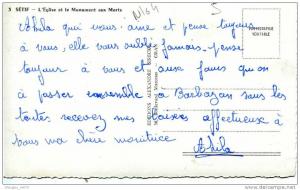 3 SÉTIF - L'Église et le Monument aux Morts
Ahila qui vous aime et pense toujours
à vous, elle vous oublie jamais - pense
toujours à vous et aux jours qu'on
à passer ensemble à Barbazan sous les
toutes recevez mes baisers affectueux à
vous ma chère monitrice
Ahila
EDITIONS ALEXANDRE
PHOTOGRAPHIE
VÉRITABLE
5